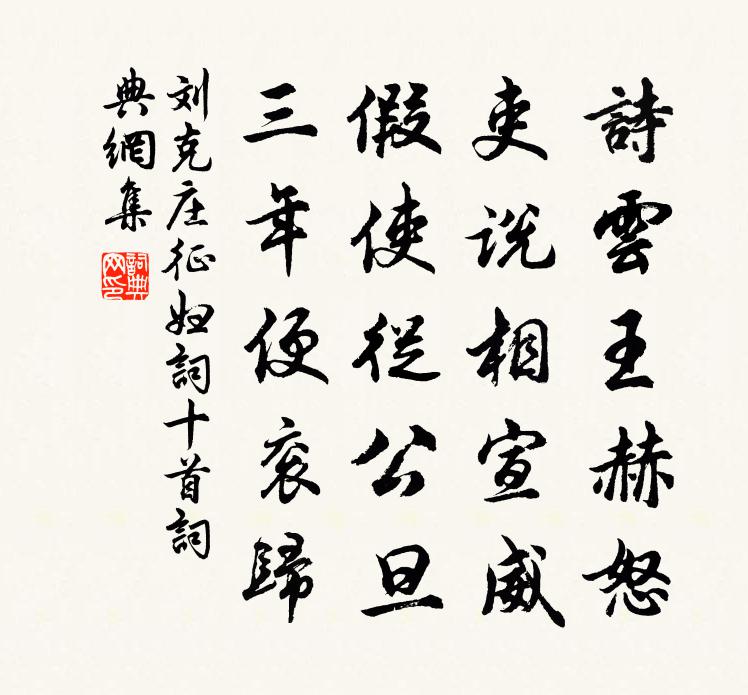 詩雲王赫怒
吏説相宣威
假使從公旦
三年便衮歸
刘克庄征妇詞十首詞
典網集
詞典网印